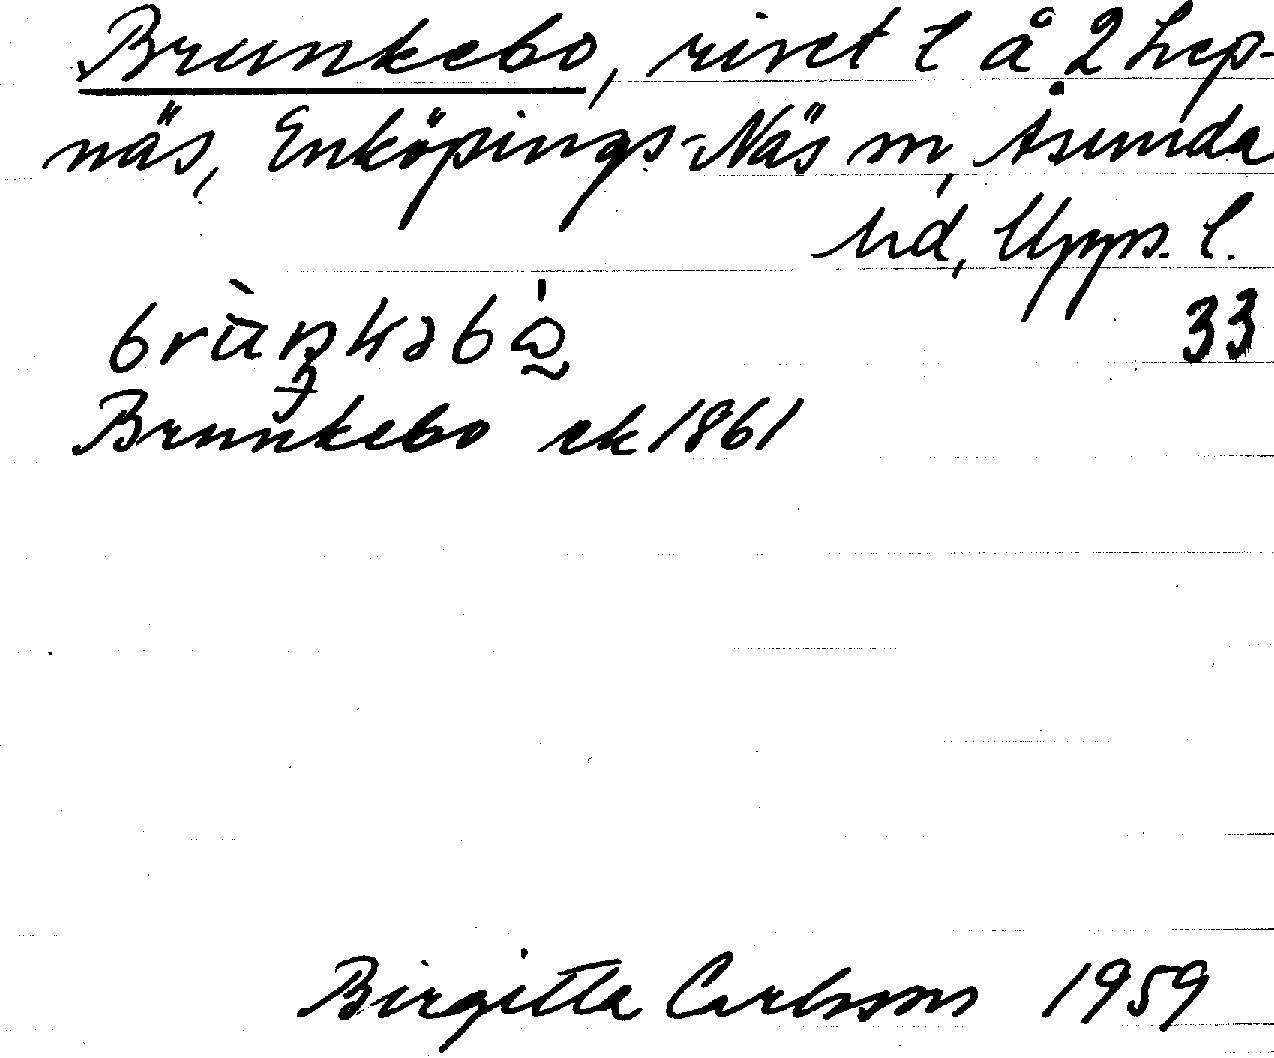 Brunkebo, rivet l å 2 Lep-
näs, Enköpings-Näs sn, Åsunda
hd, Upps. l.
33
Brunkebo ek 1861
Birgitta Carlsson 1959